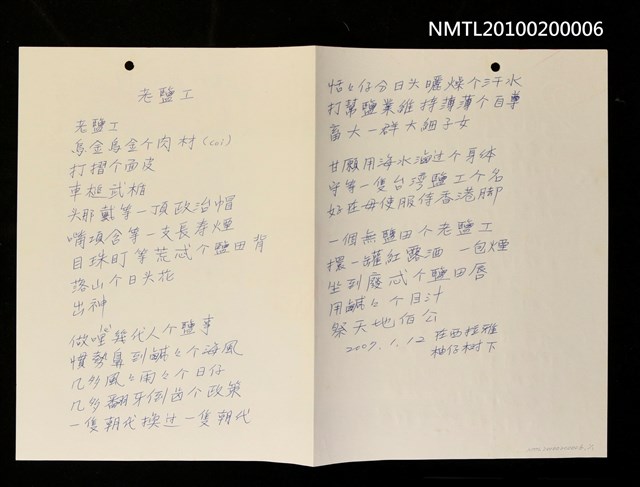 NMTL20100200006
老鹽工
老鹽工
烏金烏金个肉材(coi)
打摺个面皮
車槌武楯
頭那戴等一頂政治帽
嘴項含等一支長寿煙
目珠盯等荒忒个鹽田背
落山个日头花
出神
做嘡幾代人个鹽事
慣勢鼻到鹹々个海風
几多風々雨々个日仔
几多翻牙倒齒个政策
一隻朝代換过一隻朝代
恬々仔分日头曬燥个汗水
打幫鹽業維持薄薄个自尊
畜大一群大細子女
甘願用海水淪过个身体
守等一隻台湾鹽工个名
好在毋使服侍香港脚
一個無鹽田个老鹽工
摜一罐紅露酒 一包煙
坐到廢忒个鹽田唇
用鹹々个目汁
祭天地伯公
2009.1.12 在西拉雅
柚仔树下